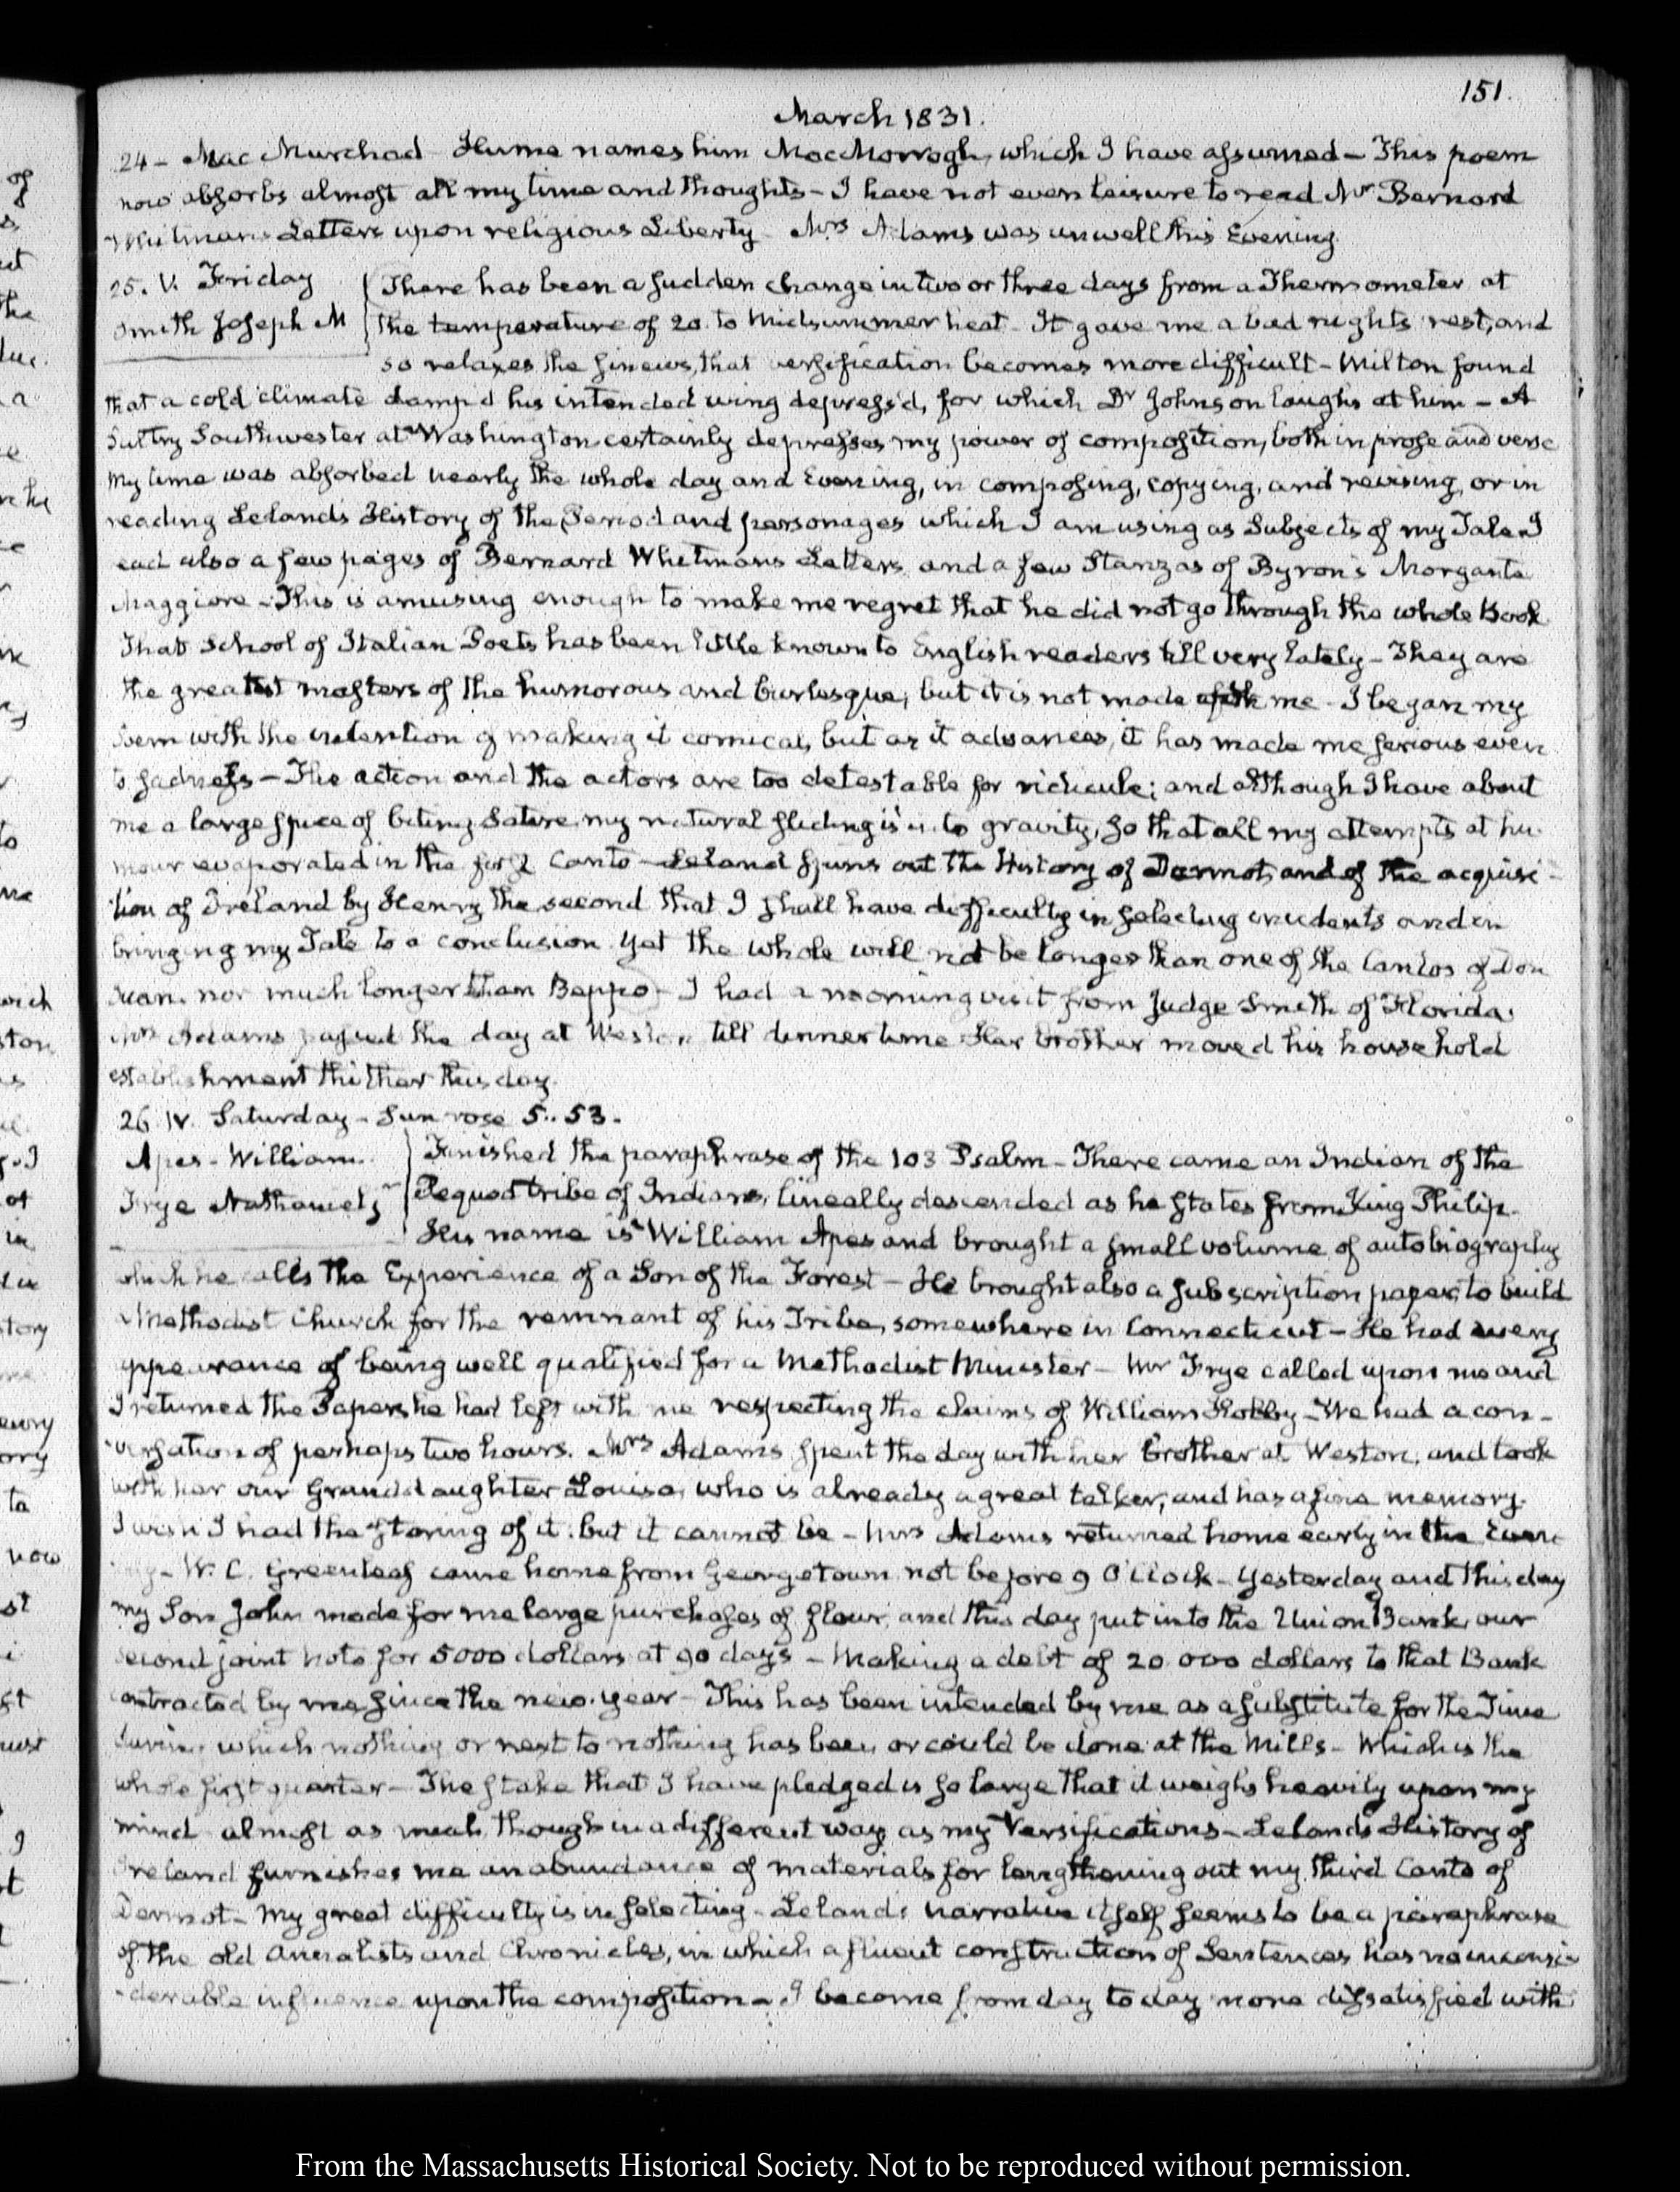 151.
March 1831.
24 - Mac Murchad Hume names him MacMorrogh, which I have assumed - This poem
now absorbs almost all my time and thoughts - I have not even leisure to read Mr Bernard
Whitman's Letters upon religious Liberty Mrs Adams was unwell this Evening.
25. V. Friday
Smith Joseph M
There has been a sudden change in two or three days from a Thermometer at
the temperature of 20. to Midsummer heat - It gave me a bad nights rest, and
so relaxes the sinews, that versification becomes more difficult - Milton found
that a cold climate damp'd his intended wing depress'd, for which Dr Johnson laughs at him - A
Sultry Southwester at Washington certainly depresses my power of composition, both in prose and verse
My time was absorbed nearly the whole day and Evening, in composing, copying, and revising, or in
reading Leland's History of the Period and personages which I am using as Subjects of my Tale. I
read also a few pages of Bernard Whitmans Letters and a few Stanzas of Byron's Morgante
Maggiore - This is amusing enough to make me regret that he did not go through the whole Book
That School of Italian Poets has been little known to English readers till very lately - They are
the greatest masters of the humorous and burlesque, but it is not made me - I began my
Poem with the intention of making it comical, but as it advances, it has made me serious even
to sadness - The action and the actors are too detestable for ridicule; and although I have about
me a large spice of biting Satire, my natural is to gravity, so that all my attempts at hu-
mour evaporated in the first Canto - Leland spins out the History of Dermot, and of the acquisi-
tion of Ireland by Henry the second that I shall have difficulty in selecting incidents and in
bringing my Tale to a conclusion. Yet the whole will not be longer than one of the Cantos of Don
Juan. nor much longer than Beppo - I had a morning visit from Judge Smith of Florida.
Mrs Adams passed the day at Weston till dinner time Her brother moved his household
establishment thither this day.
26. IV. Saturday - Sun rose 5..53.
Apes - William.
Frye Nathaniel
Finished the paraphrase of the 103 Psalm - There came an Indian of the
Pequod tribe of Indians, lineally descended as he states from King Philip.
His name is William Apes and brought a small volume of autobiography
which he calls the Experience of a Son of the Forest - He brought also a subscription paper, to build
a Methodist Church for the remnant of his Tribe, somewhere in Connecticut - He had every
appearance of being well qualified for a Methodist Minister - Mr Frye called upon me and
I returned the Papers he had left with me respecting the claims of William Hobby - We had a con-
versation of perhaps two hours. Mrs Adams spent the day with her brother at Weston, and took
with her our Granddaughter Louisa, who is already a great talker, and has a fine memory.
I wish I had the storing of it. but it cannot be - Mrs Adams returned home early in the Even-
ing - W. C. Greenleaf came home from Georgetown not before 9 O'Clock - Yesterday and this day
my Son John made for me large purchases of flour, and this day put into the Union Bank, our
second joint note for 5000 dollars at 90 days - Making a debt of 20.000 dollars to that Bank
contracted by me since the new-year - This has been intended by me as a substitute for the Time
during which nothing or next to nothing has been or could be done at the Mills - Which is the
whole first quarter - The stake that I have pledged is so large that it weighs heavily upon my
mind almost as much though in a different way as my Versifications - Leland's History of
Ireland furnishes me an abundance of materials for lengthening out my third Canto of
Dermot - My great difficulty is in selecting - Leland's narrative itself seems to be a paraphrase
of the old Annalists and Chronicles, in which a fluent construction of Sentences has no inconsi-
-derable influence upon the composition - I become from day to day more dissatisfied with
From the Massachusetts Historical Society. Not to be reproduced without permission.